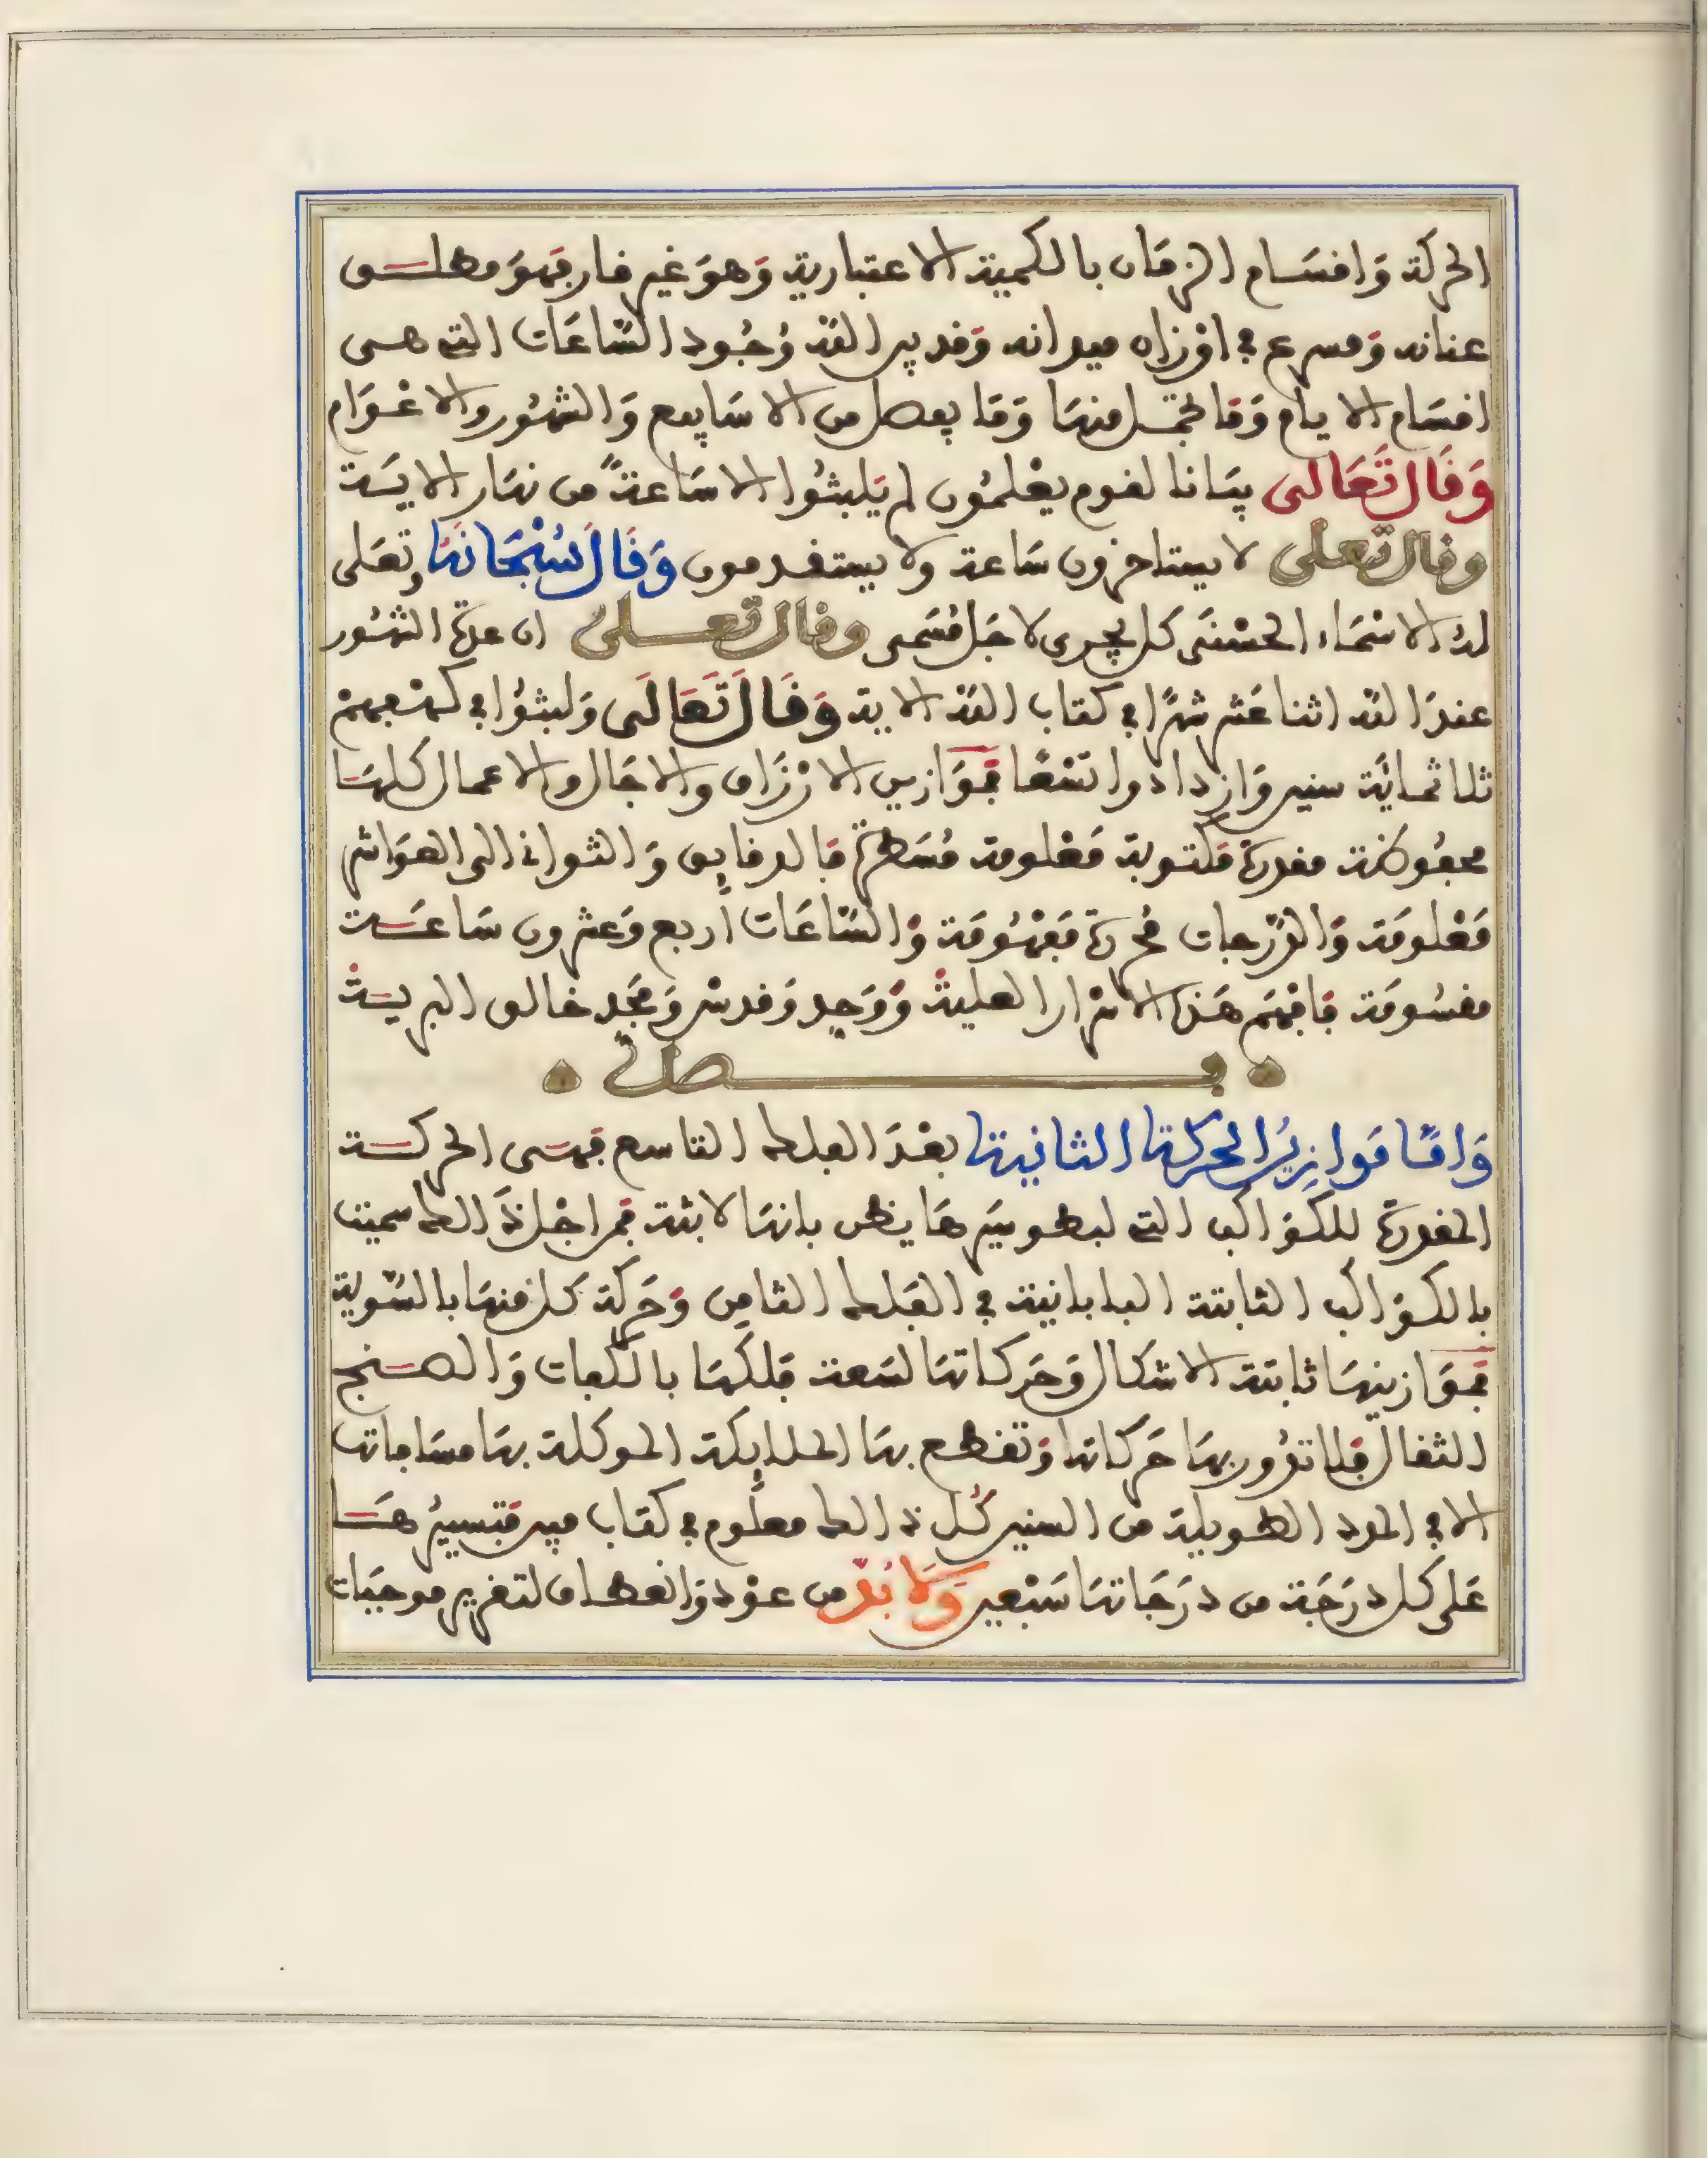 الحركة وَاقسَام الزمَان بالكمية الاعتبارية وَهوَ غير قار فهوَ مطلــق
عنانه وَمسرع في اوْزاه ميدانه وَقد بين اللّه وُجُود السَّاعَات التي هـي
اقسَام الايام وَمَا تجمّل منهَا وَمَا يفصل من الاسَابيع وَالشهُور والاعْوَام
وَقَال تَعَالى بيَانا لقوم يعْلمُون لم يَلبثُوا الا سَاعةً من نهَار الايَـة
وقال تعلى لا يستاخرون ساعة ولا يستقدمون وَقَال سُبْحَانهُ وتعَلى
لهُ الاسْمَاء الحسْنَى كل يجرى لاجَل مُسَمى وقال تعــلى ان عدة الشهُور
عندَ اللّه اثنا عَشر شهرًا في كتاب اللّه الاية وَقَالَ تَعَالَى وَلبثُوا في كهْفهمْ
ثلاثمايَة سنين وَازدادوا تسْعًا فمَوَازين الارْزَاق والاجَال والاعمال كلهَا
محفُوظة مقدرة مَكتوبة مَعْلومة مُسَطرة فَالدقايق وَالثواني الى العوَاشر
مَعْلومَة وَالدّرجات محررة مَفْهُومَة وَالسَّاعَات أربع وَعشرون سَاعَــة
مقسُومَة فَافهَم هَذه الاسْرار العلية وَوَحِد وَقدسْ وَمَجّد خالق البريـة
فــصل
وَامَّا مَوازِينُ الحركة الثانية بعْدَ الفلك التاسع فهَى الحركــة
المقدرة للكوَاكب التي لبطو سَيرهَا يظن بانهَا لابثة فمن اجْل ذَالك سميت
بالكوَاكب الثابتة البابانية في الفَلك الثامِن وَحَركة كل منهَا بالسّوية
فمَوَازينهَا ثابتة الاشكال وَحَركاتهَا لسَعة فلكهَا بالكفات وَالصــنج
الثقال فَلا تدُور بهَا حَركاتها وَتقطع بهَا الملايكة الموكلة بهَا مسَافاتها
الا في المدد الطويلة من السنين كُل ذالك معلُوم في كتاب مبين فتسييرُهَــا
عَلى كل دَرَجَة من دَرَجَاتهَا سَبْعين وَلَا بُدّ من عوْد وَانعطاف لتغرير موجبَات